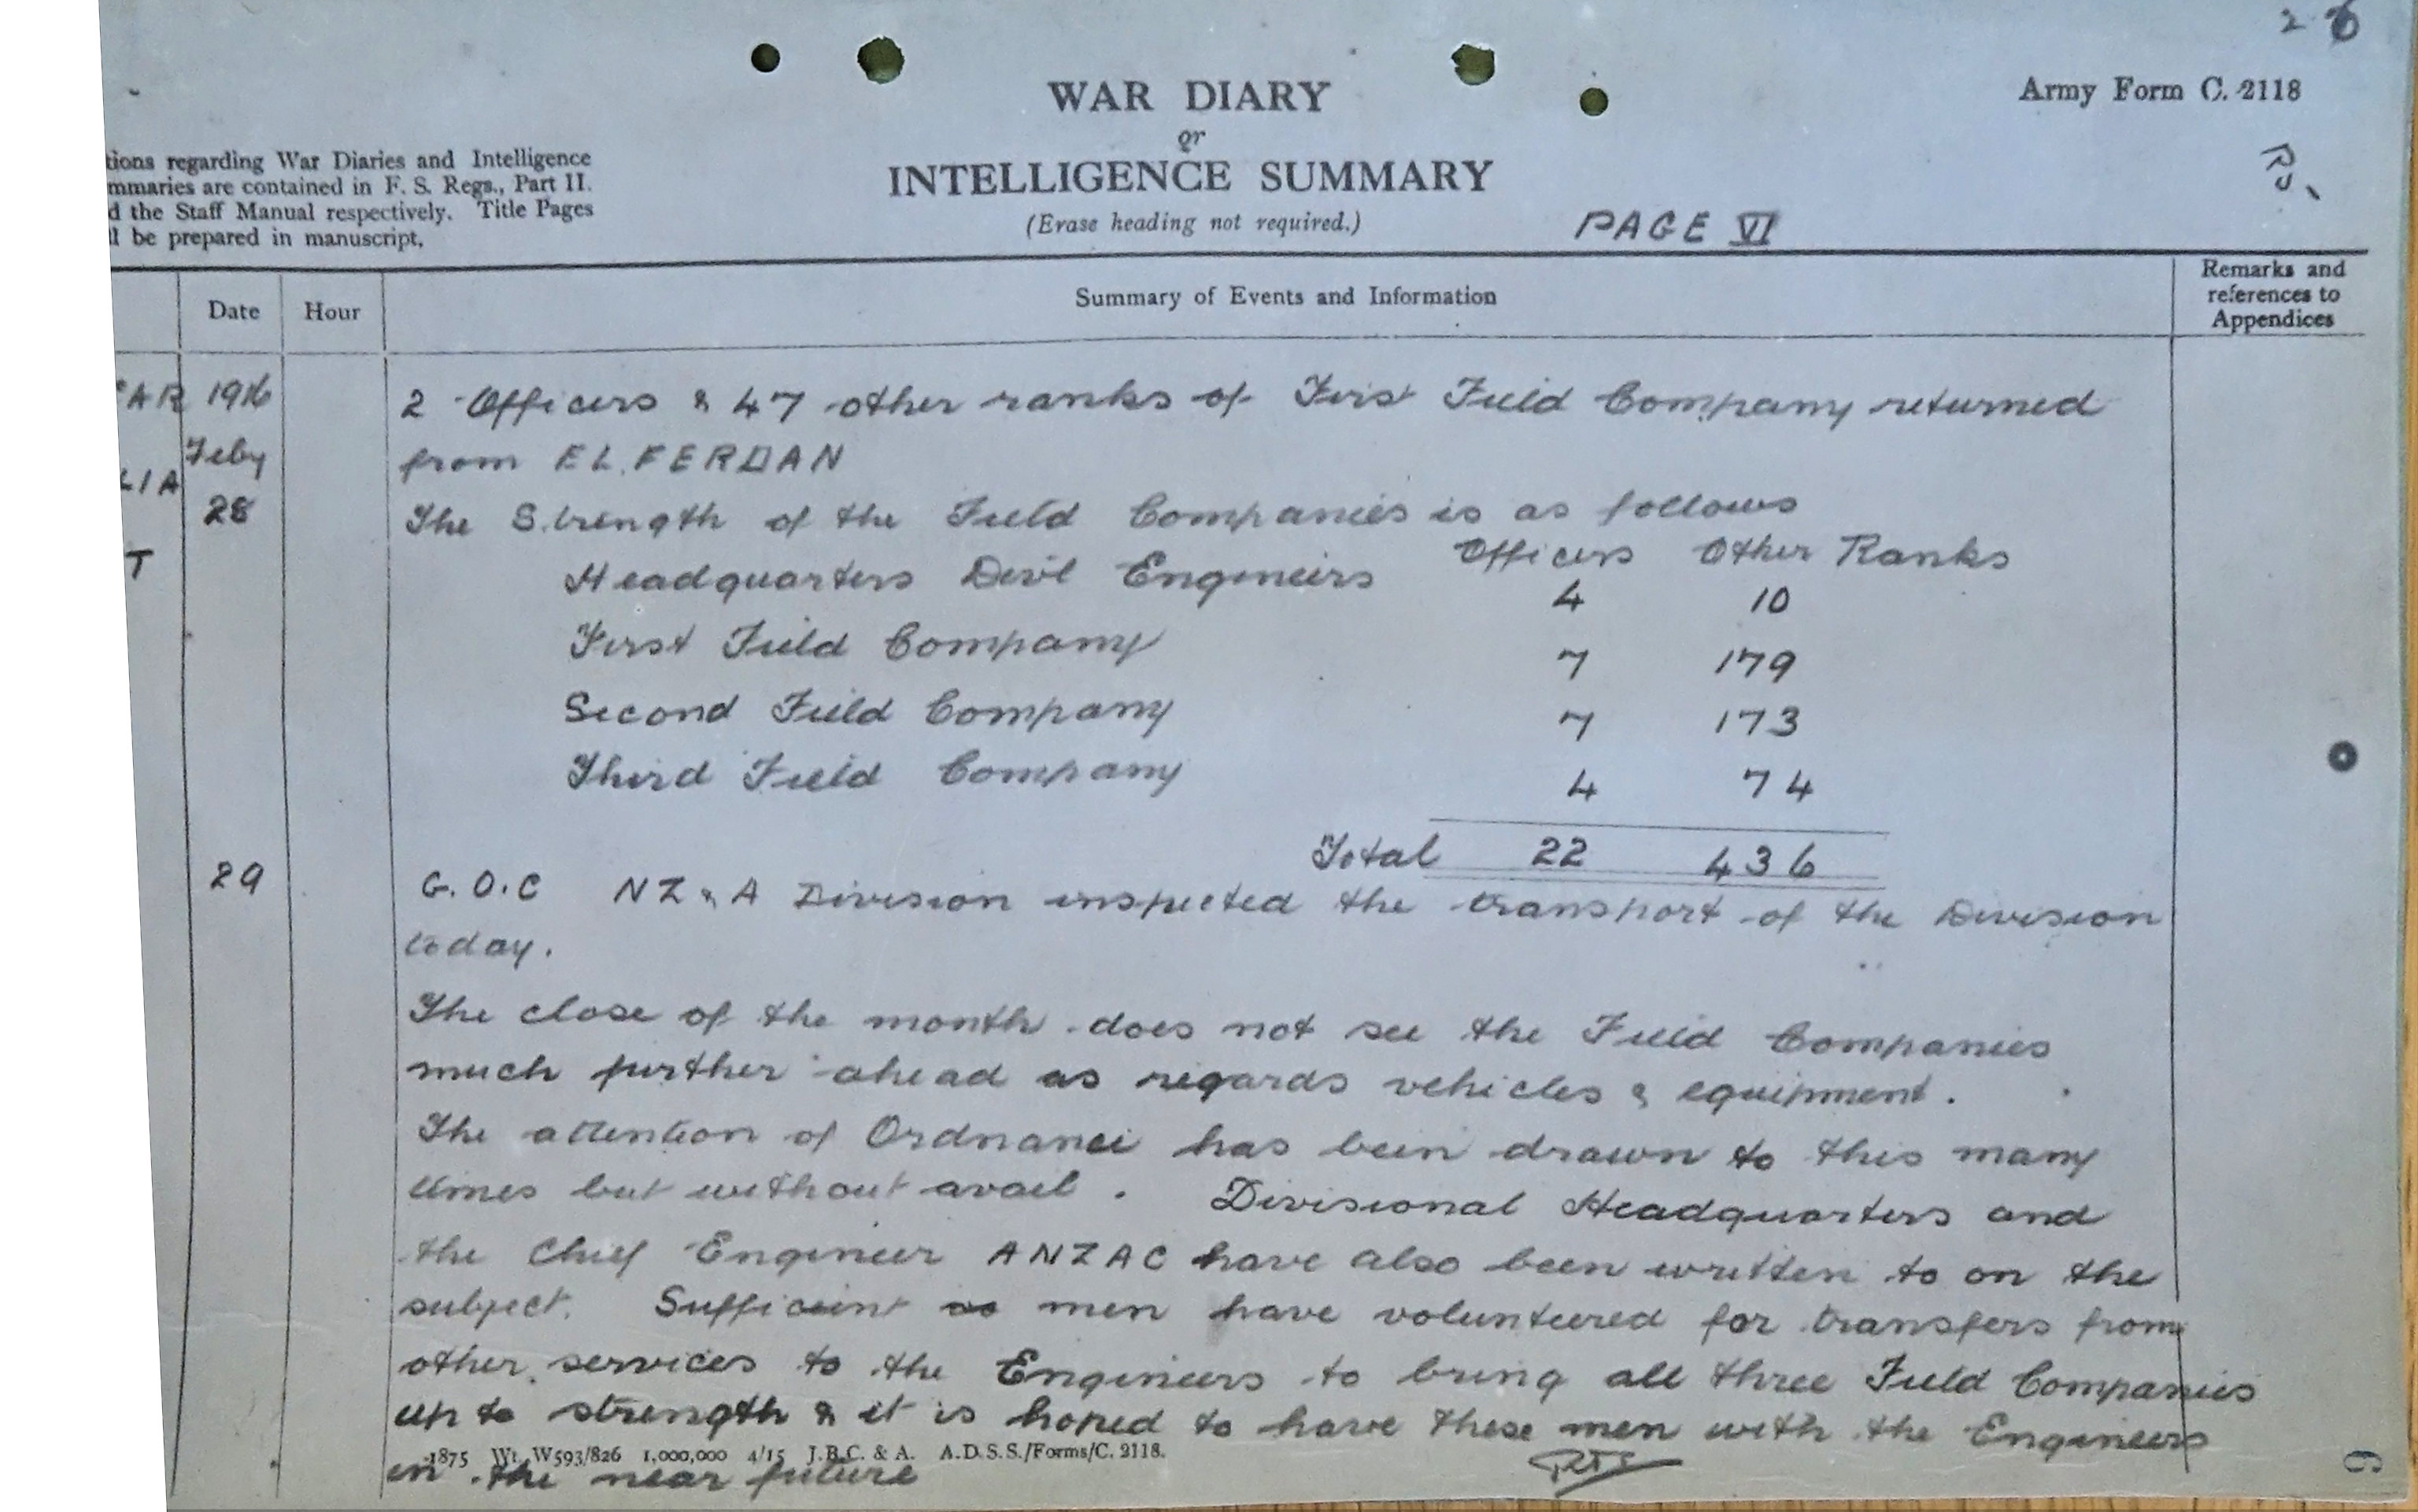 26
WAR DIARY
or
INTELLIGENCE SUMMARY
(Erase heading not required.)
Army Form C. 2118
tions regarding War Diaries and Intelligence
mmaries are contained in F. S. Regs., Part II.
d the Staff Manual respectively. Title Pages
l be prepared in manuscript.
PAGE VI
Date
Hour
Summary of Events and Information
Remarks and
references to
Appendices
AR 1916
Feby
LIA
28
T
2 Officers & 47 other ranks of First Field Company returned
from EL.FERDAN
The Strength of the Field Companies is as follows
Officers Other Ranks
Headquarters Divl Engineers 4 10
First Field Company 7 179
Second Field Company 7 173
Third Field Company 4 74
Total 22 436
29 G.O.C NZ & A Division inspected the transport of the Division
today.
The close of the month does not see the Field Companies
much further ahead as regards vehicles & equipment.
The attention of Ordnance has been drawn to this many
times but without avail. Divisional Headquarters and
the Chief Engineer ANZAC have also been written to on the
subject. Sufficient men have voluntered for transfers from
other services to the Engineers to bring all three Field Companies
up to strength & it is hoped to have these men with the Engineers
in the near future
1875 Wt. W593/826 1,000,000 4/15 J.B.C. & A. A.D.S.S./Forms/C. 2118.